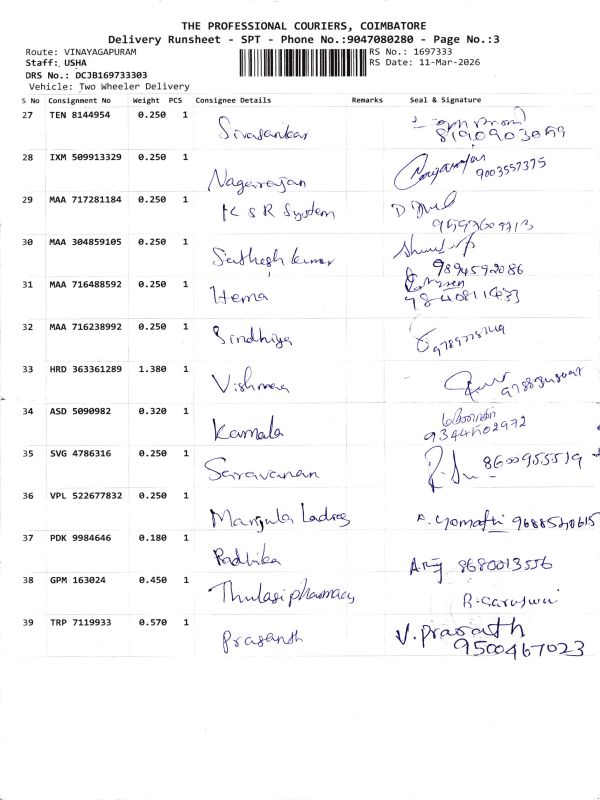 THE PROFESSIONAL COURIERS, COIMBATORE
Delivery Runsheet - SPT - Phone No.:9047080280 - Page No.:3
Route: VINAYAGAPURAM
RS No.: 1697333
Staff: USHA
RS Date: 11-Mar-2026
DRS No.: DCJB169733303
Vehicle: Two Wheeler Delivery
S No Consignment No Weight PCS Consignee Details Remarks Seal & Signature
27 TEN 8144954 0.250 1 Sivasankar
28 IXM 509913329 0.250 1 Nagarajan 9003557375
29 MAA 717281184 0.250 1 K S R System
30 MAA 304859105 0.250 1 Sathesh kumar 9894592086
31 MAA 716488592 0.250 1 Hema
32 MAA 716238992 0.250 1 Sindhiya
33 HRD 363361289 1.380 1
34 ASD 5090982 0.320 1 Kamala 9344502972
35 SVG 4786316 0.250 1 Saravanan 8600955519
36 VPL 522677832 0.250 1 9688540615
37 PDK 9984646 0.180 1 Radhika 8680013556
38 GPM 163024 0.450 1 Thulasi pharmacy
39 TRP 7119933 0.570 1 Prasanth V. Prasath
9500467023